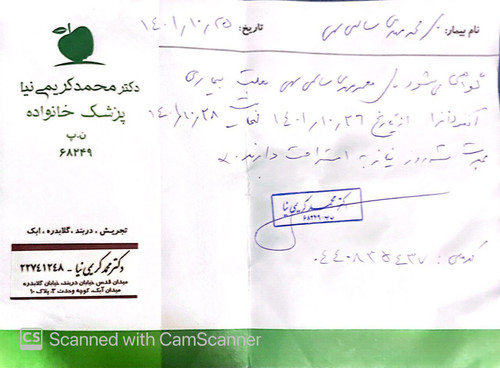 نام بیمار:
تاریخ: ۱۴۰۱/۱۰/۲۵
دکتر محمد کریمی نیا
پزشک خانواده
ن.پ
۶۸۲۴۹
گواهی می‌شود
بعلت بیماری
آنفولانزا از تاریخ ۱۴۰۱/۱۰/۲۶ لغایت ۱۴۰۱/۱۰/۲۸
بمدت سه روز نیاز به استراحت دارند.
دکتر محمد کریمی نیا
۶۸۲۴۹
کد ملی:
تجریش، دربند، گلابدره، آبک
دکتر محمد کریمی نیا - ۲۲۷۴۱۲۴۸
میدان قدس، خیابان دربند، خیابان گلابدره
میدان آبک، کوچه وحدت ۲، پلاک ۱۰
CS Scanned with CamScanner